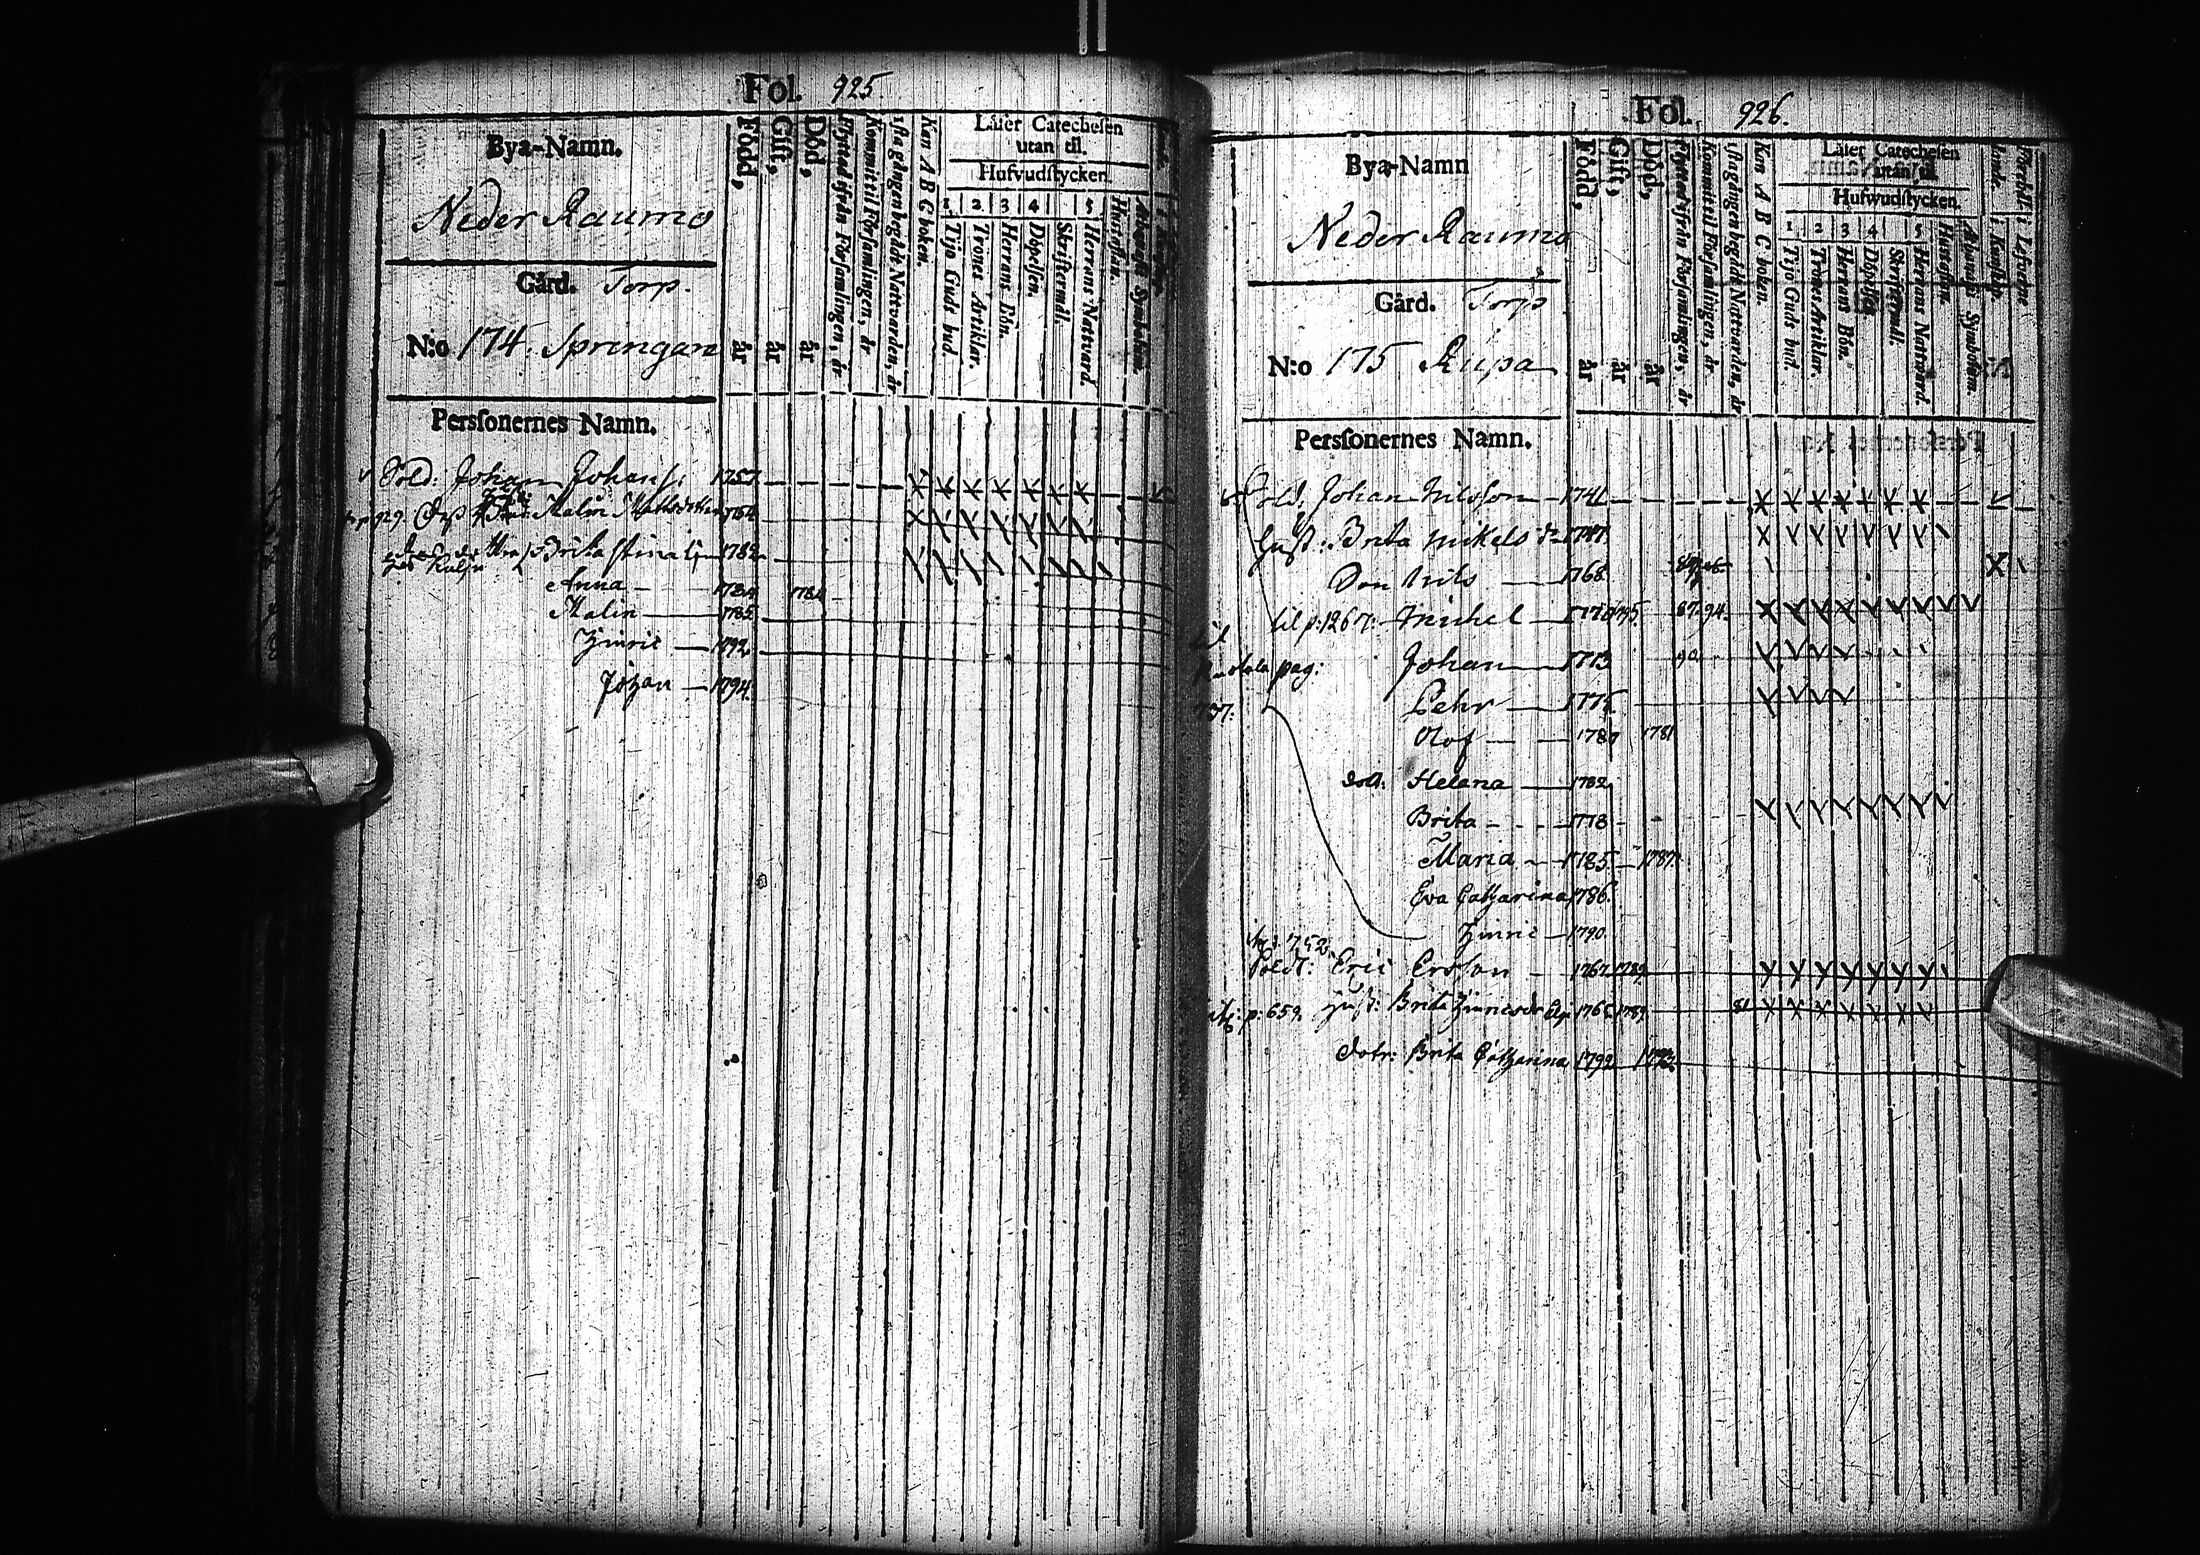 Fol. 925
Bya-Namn.
Neder Raumo
Gård. Torp.
N:o 174. Springare
Persſonernes Namn.
Född, år
Gift, år
Död, år
Flyttad ifrån Förſamlingen, år
Kommit til Förſamlingen, år
1ſta gången begådt Nattvarden, år
Kan A B C boken.
Läſer Catecheſen
utan til.
Hufvudſtycken.
1 2 3 4 5
Tijo Guds bud.
Trones Artiklar.
Herrans Bön.
Döpelſen.
Skriftermål.
Herrans Nattvard
Huustaflan.
Athanaſii Symbolum.
Sold: Johan Johanſ: 1757
Malin Mattsdotter 1764
Brita Stina 1782
Anna 1784 1784
Malin 1785
Hinric 1792
Johan 1794
Fol. 926.
Bya-Namn
Neder Raumo
Gård. Torp
N:o 175 Rupa
Persſonernes Namn.
Född, år
Gift, år
Död, år
Flyttad ifrån Förſamlingen, år
Kommit til Förſamlingen, år.
1ſta gången begådt Nattvarden, år
Kan A B C boken.
Läſer Catecheſen
utan til.
Hufwudſtycken.
1 2 3 4 5
Tijo Guds bud.
Trones Artiklar.
Herrans Bön.
Döpelſen
Skriftermål.
Herrans Nattvard.
Huustaflan.
Athanaſii Symbolum.
Sold: Johan Nilsſon 1741
Huſt: Brita Mikels dr 1747
Son Nils 1768
til p: 1267: Michel 1770 1795. 87. 94.
Johan 1773 90
pag:
Pehr 1775
737:
Olof 1780 1781
dott: Helena 1782
Brita 1778
Maria 1785 1787
Eva Catharina 1786.
Hinric 1790.
Soldt: Eric Ersſon 1767 1789
p: 659. Huſt: Brita Hinricsdr 1765 1789 81
Dotr: Brita Catharina 1792 1792